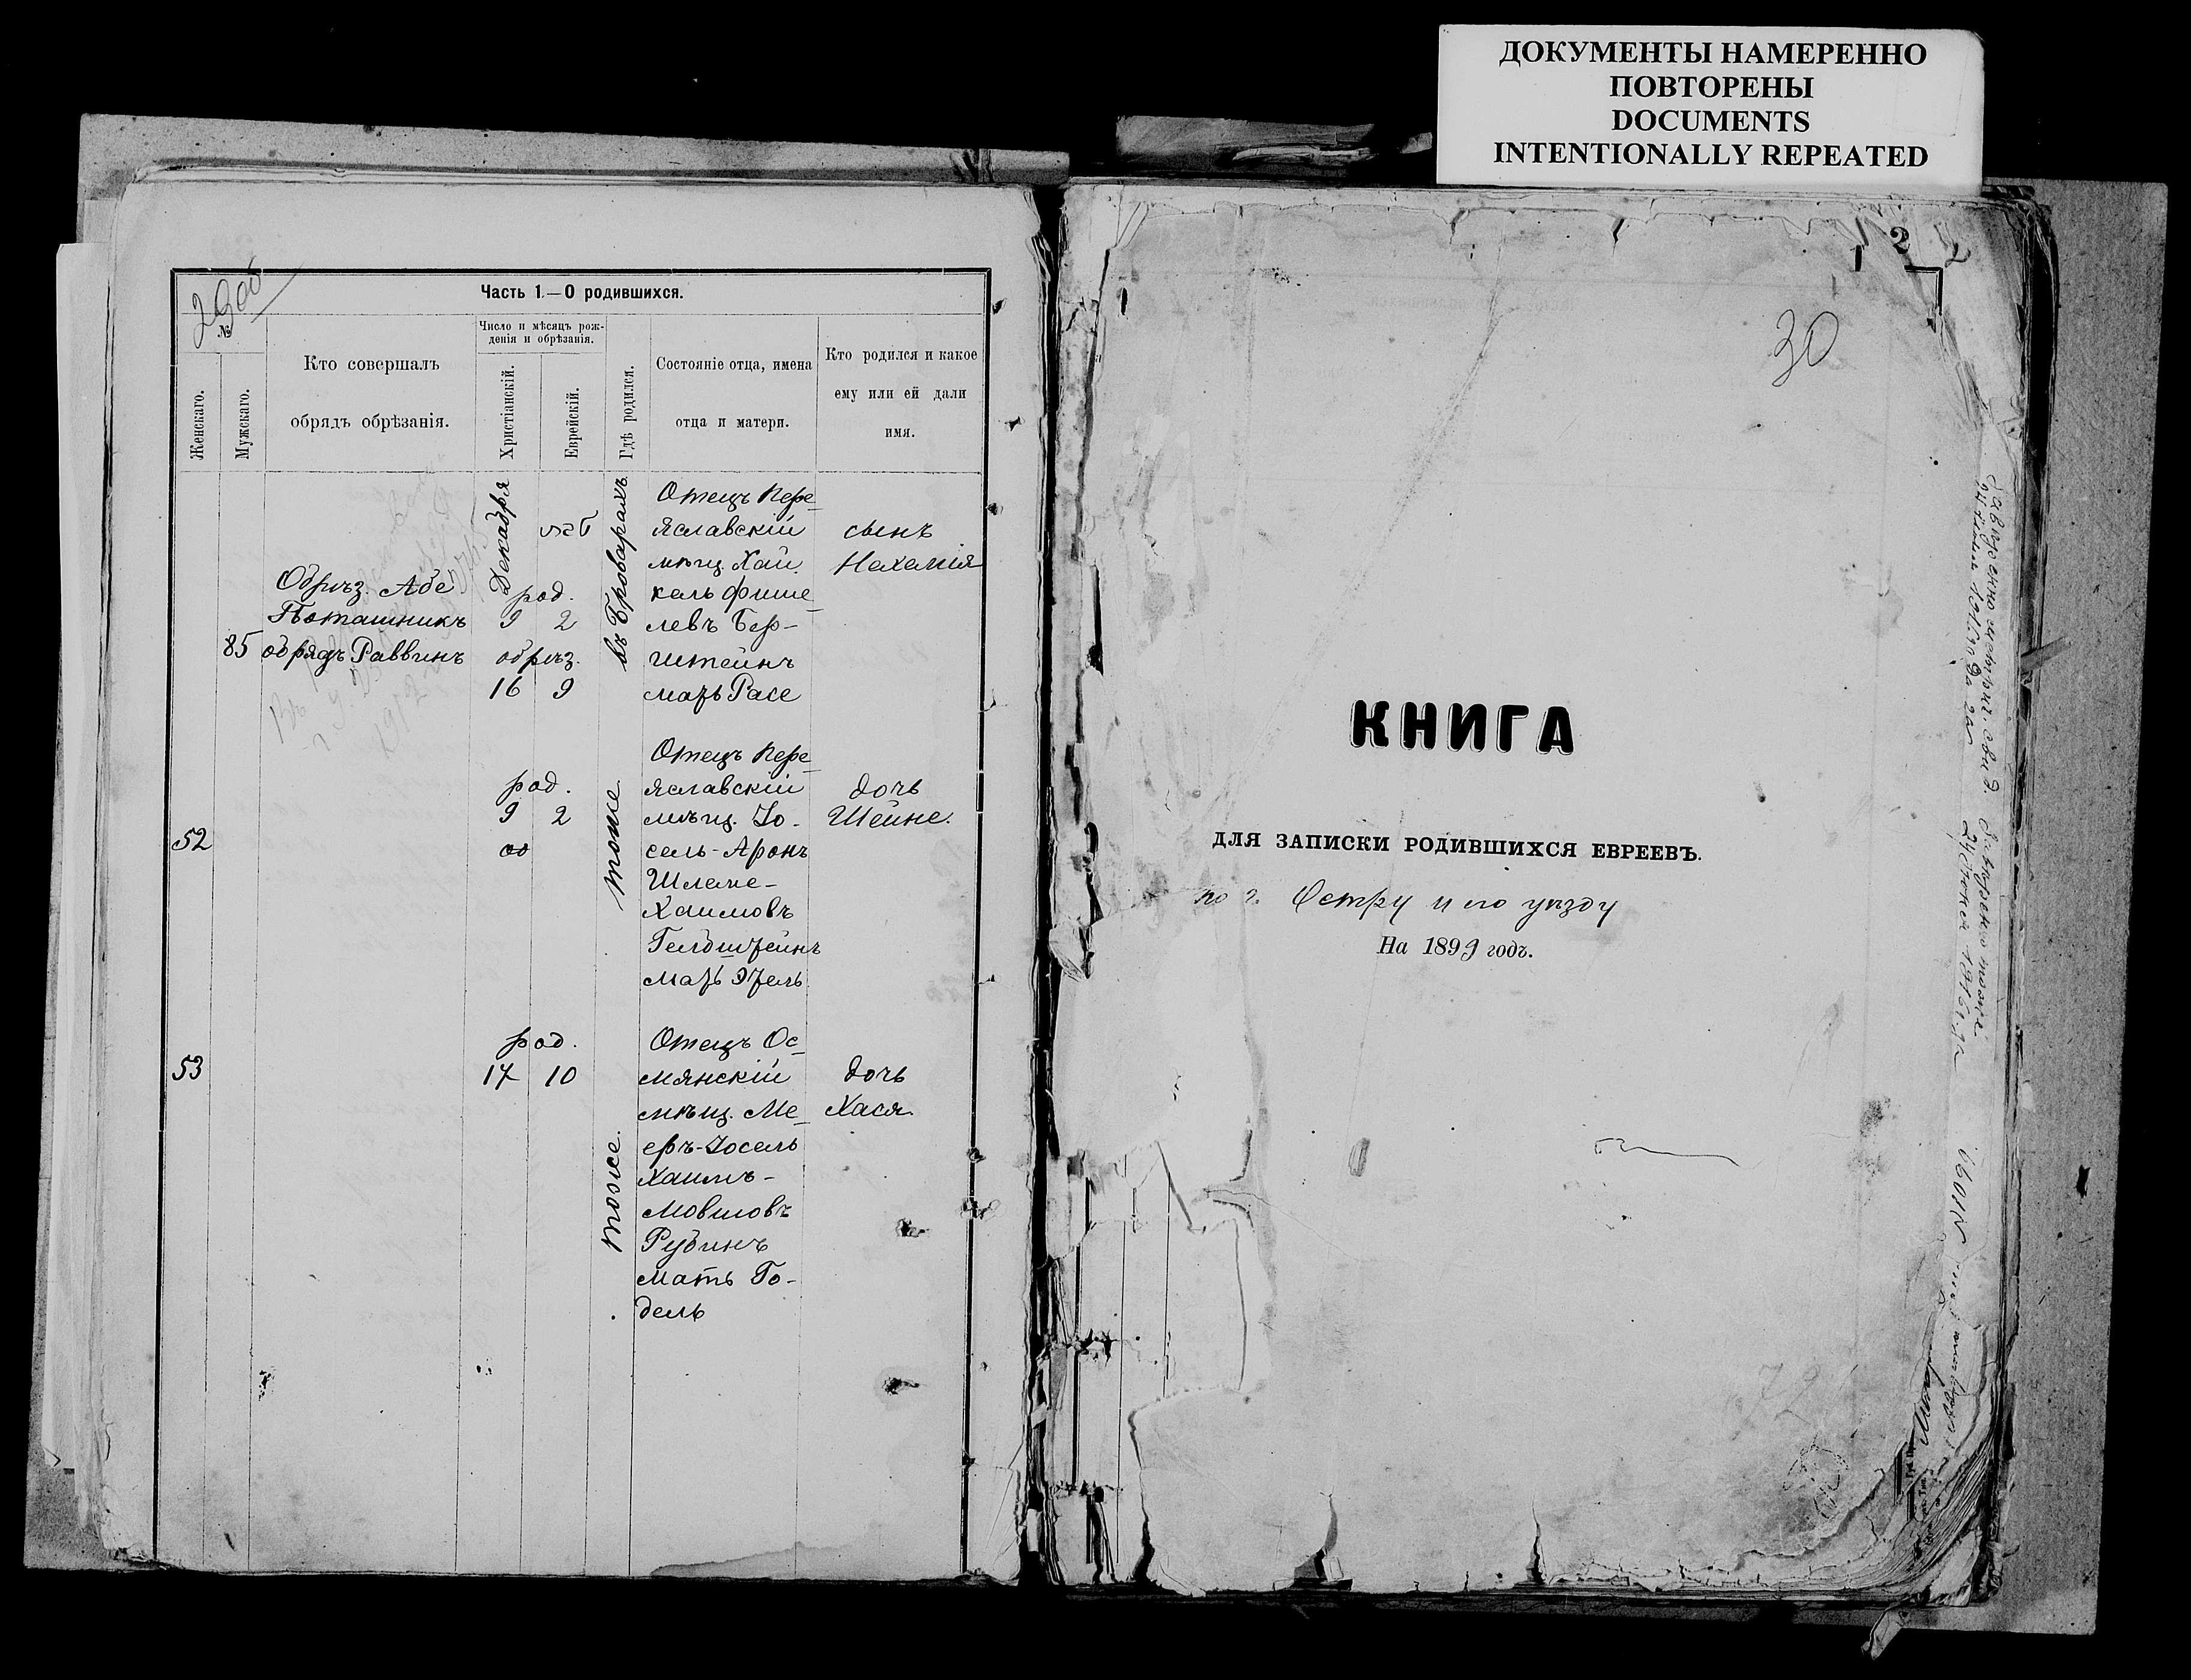 ДОКУМЕНТЫ НАМЕРЕННО
ПОВТОРЕНЫ
DOCUMENTS
INTENTIONALLY REPEATED
Часть 1.—О родившихся.
№
Женскаго.
Мужскаго.
Кто совершалъ
обрядъ обрѣзанія.
Число и мѣсяцъ рож-
денія и обрѣзанія.
Христіанскій.
Еврейскій.
Гдѣ родился.
Состояніе отца, имена
отца и матери.
Кто родился и какое
ему или ей дали
имя.
85
Обрѣз. Абе
Поташникъ
обрядъ Раввинъ
Декабря
טבת
род.
9 2
обрѣз.
16 9
въ Броварахъ
Отецъ Пере-
яславскій
мѣщ. Хай
кель Фише-
левъ Бер-
штейнъ
мать Расе
сынъ
Нехемія
52
род.
9 2
тоже
Отецъ Пере-
яславскій
мѣщ. Іо-
сель-Аронъ
Шлеме-
Хаимовъ
Гелбштейнъ
мать Этель
дочь
Шейне.
53
род.
17 10
тоже.
Отецъ Ос-
мянскій
мѣщ. Ме-
еръ-Іосель
Хаимъ-
Мовшовъ
Рубинъ
мать Го-
дель
дочь
Хася
2
30
КНИГА
ДЛЯ ЗАПИСКИ РОДИВШИХСЯ ЕВРЕЕВЪ.
по г. Остру и его уѣзду
На 1899 годъ.